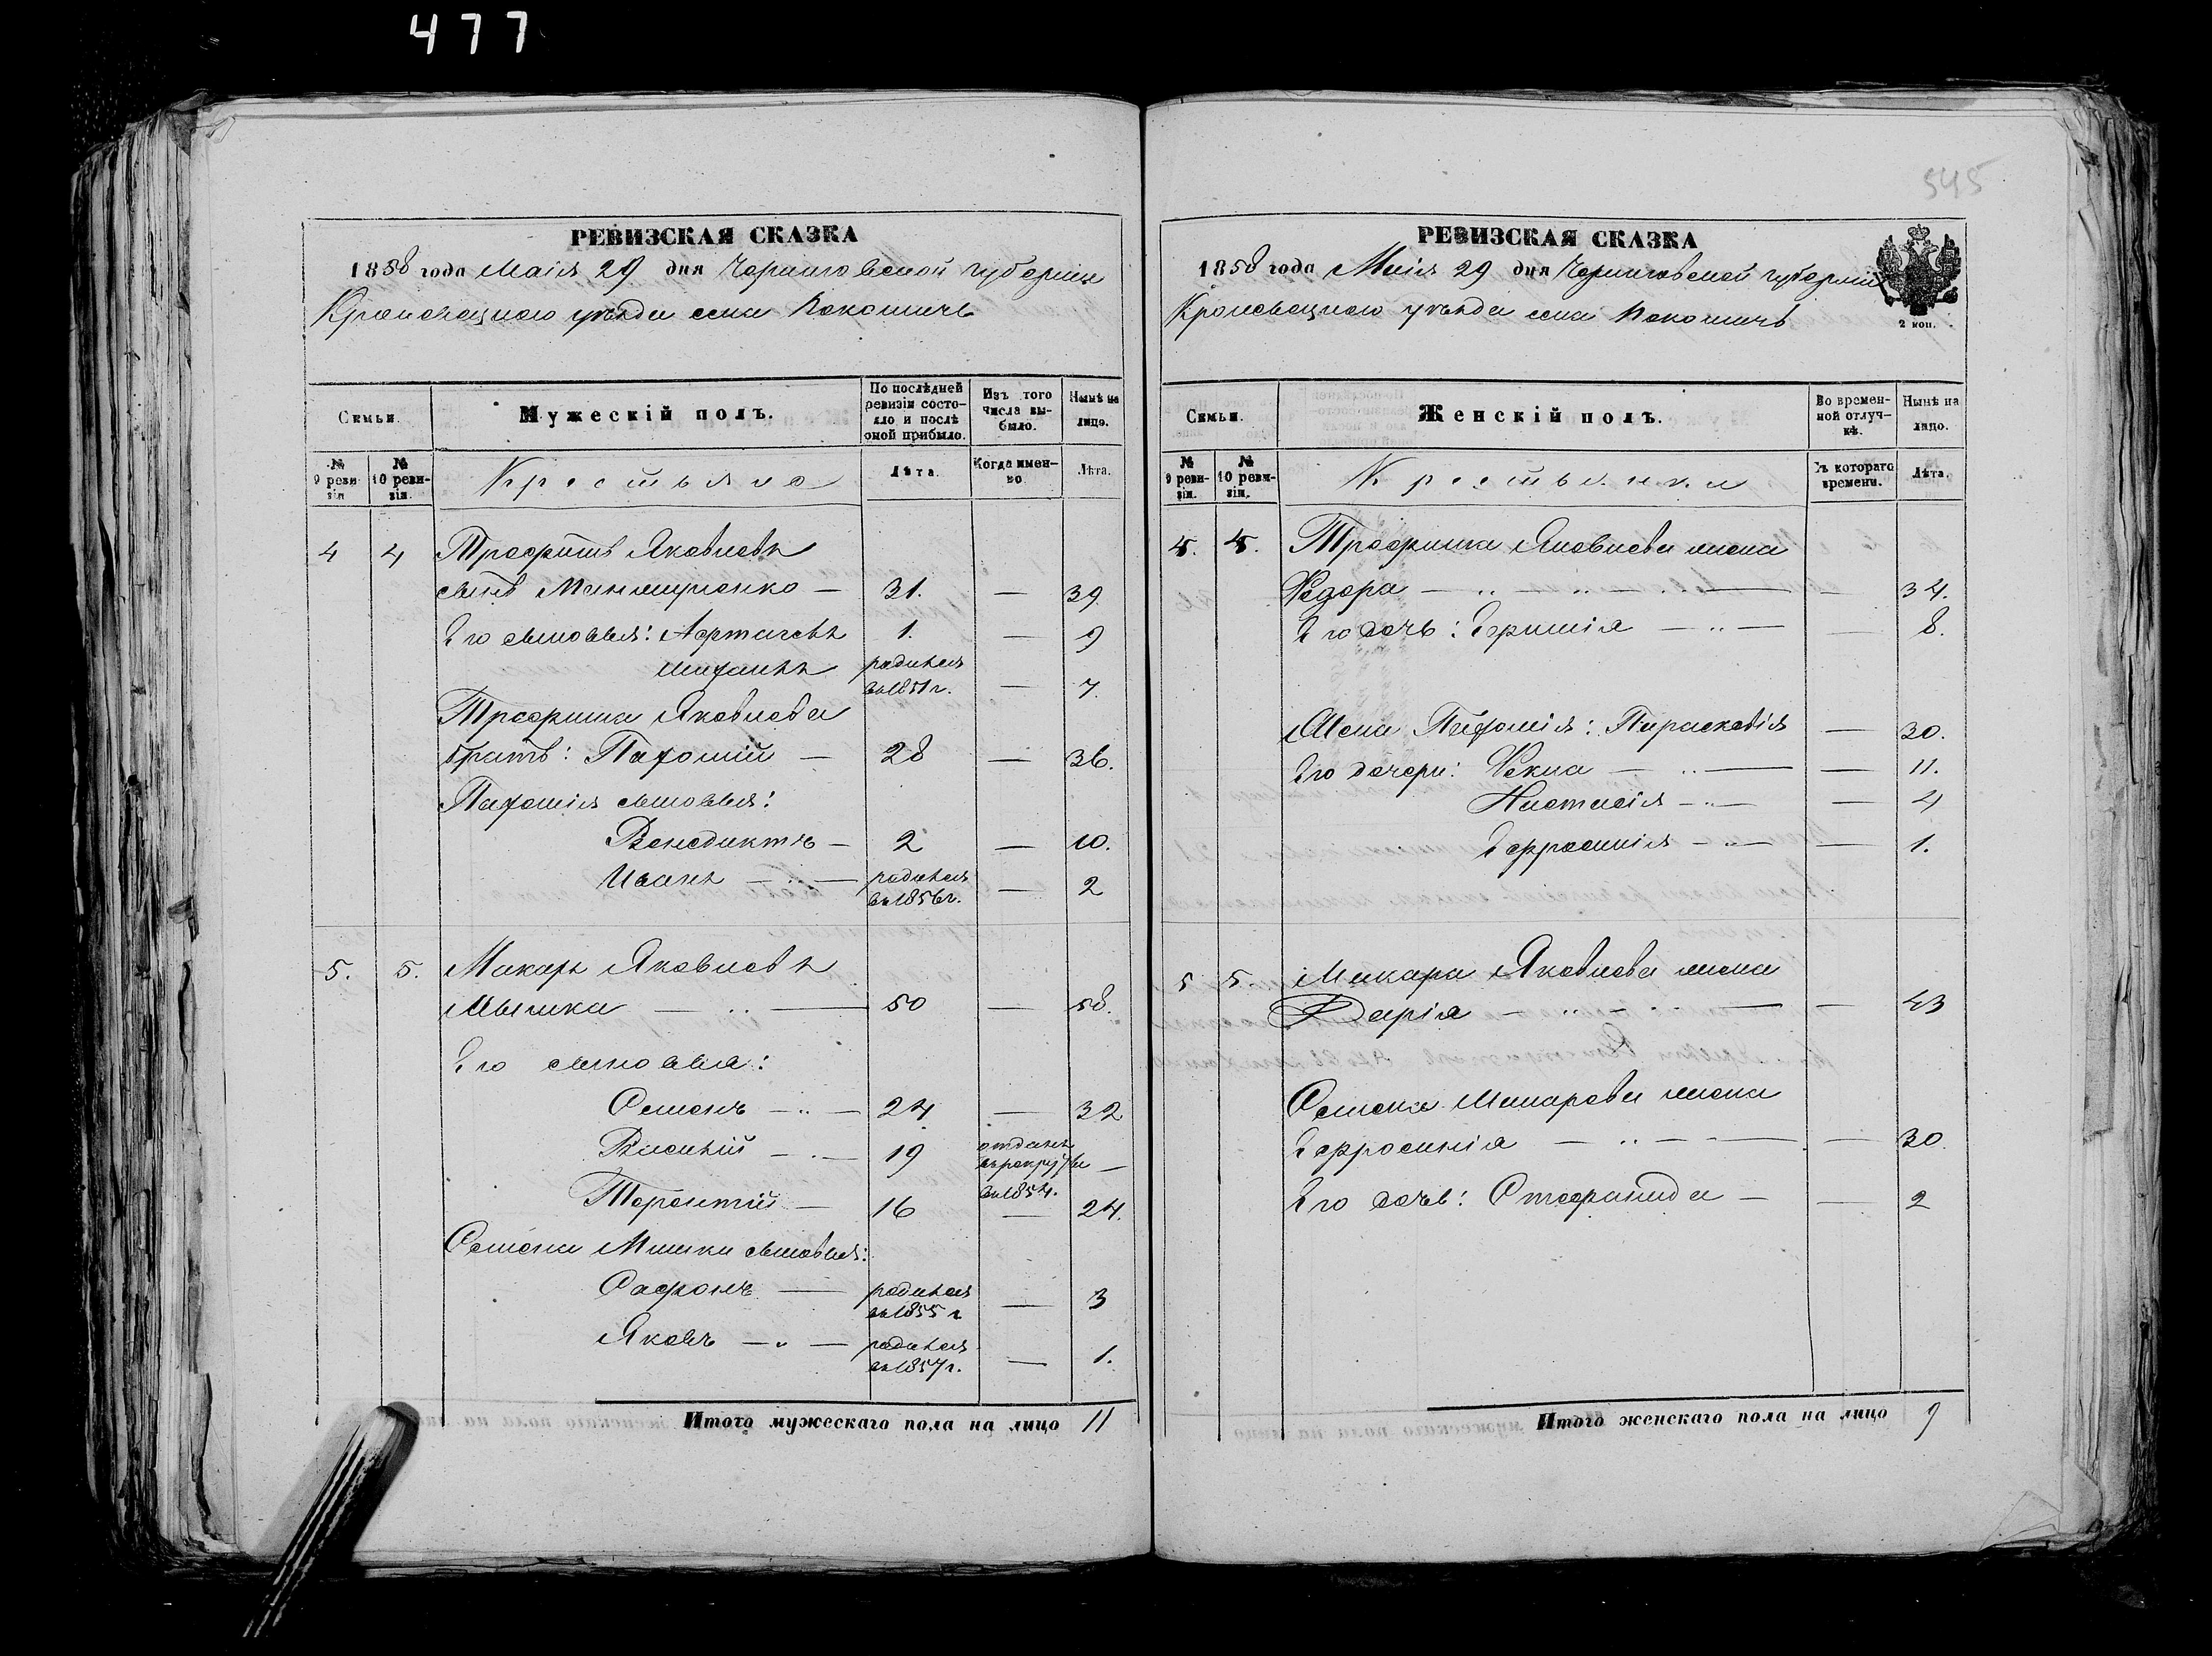 477
545
РЕВИЗСКАЯ СКАЗКА
1858 года Маія 29 дня Черниговской губерніи
Кролевецкаго уѣзда села Кокошичь
Семьи.
Мужескій полъ.
По послѣдней ревизіи состояло и послѣ оной прибыло.
Изъ того числа выбыло.
Нынѣ на лицо.
№ 9 ревизіи
№ 10 ревизіи.
Крестьяне
Лѣта.
Когда именно
Лѣта.
4 4 Трофимъ Яковлевъ
сынъ — 31. — 39
Его сыновья: 1. — 9
родился въ 1851 г. — 7.
Трофима Яковлева
братъ: Пахомій — 28 — 36.
Пахомія сыновья:
Венедиктъ — 2 — 10.
Иванъ — родился въ 1856 г. — 2
5. 5. Макаръ Яковлевъ
Мышка — 50 — 58.
Его сыновья:
Семенъ — 24 — 32
Василій — 19 отданъ въ рекруты въ 1854. —
Терентій — 16 — 24.
Семена Мишки сыновья:
Сафонъ — родился въ 1855 г — 3
Яковъ — родился въ 1857 г. — 1.
Итого мужескаго пола на лицо 11
РЕВИЗСКАЯ СКАЗКА
1858 года Маія 29 дня Черниговской губерніи
Кролевецкаго уѣзда села Кокошичь
2 коп.
Семьи.
Женскій полъ.
Во временной отлучкѣ.
Нынѣ на лицо.
№ 9 ревизіи.
№ 10 ревизіи.
Крестьянки
Съ котораго времени.
Лѣта.
4. 4. Трофима Яковлева жена
Ѳедора — — 34.
Его дочь: — 8.
Жена Пахомія: Параскевія — 30.
Его дочери: Ѳекла — — 11.
Настасія — — 4
Ефросинія — — 1.
5 5. Макара Яковлева жена
Дарія — — 43
Семена Макарова жена
Ефросинія — — 30
Его дочь: Стефанида — — 2
Итого женскаго пола на лицо 9